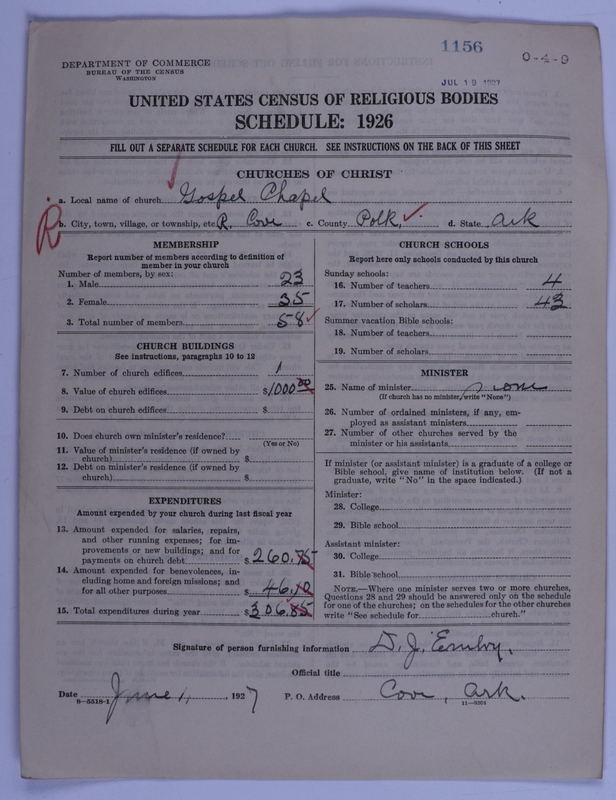 1156
0-4-9
DEPARTMENT OF COMMERCE
BUREAU OF THE CENSUS
WASHINGTON
JUL 19 1927
UNITED STATES CENSUS OF RELIGIOUS BODIES
SCHEDULE: 1926
FILL OUT A SEPARATE SCHEDULE FOR EACH CHURCH. SEE INSTRUCTIONS ON THE BACK OF THIS SHEET
CHURCHES OF CHRIST
a. Local name of church Gospel Chapel
R
b. City, town, village, or township, etc. R. Cove c. County Polk, d. State Ark
MEMBERSHIP
Report number of members according to definition of
member in your church
Number of members, by sex:
1. Male 23
2. Female 35
3. Total number of members 58
CHURCH BUILDINGS
See instructions, paragraphs 10 to 12
7. Number of church edifices 1
8. Value of church edifices $1000 00
9. Debt on church edifices $
10. Does church own minister's residence?
(Yes or No)
11. Value of minister's residence (if owned by
church) $
12. Debt on minister's residence (if owned by
church) $
EXPENDITURES
Amount expended by your church during last fiscal year
13. Amount expended for salaries, repairs,
and other running expenses; for im-
provements or new buildings; and for
payments on church debt $ 260.75
14. Amount expended for benevolences, in-
cluding home and foreign missions; and
for all other purposes $ 46.10
15. Total expenditures during year $306.85
CHURCH SCHOOLS
Report here only schools conducted by this church
Sunday schools:
16. Number of teachers 4
17. Number of scholars 43
Summer vacation Bible schools:
18. Number of teachers
19. Number of scholars
MINISTER
25. Name of minister None
(If church has no minister, write "None")
26. Number of ordained ministers, if any, em-
ployed as assistant ministers
27. Number of other churches served by the
minister or his assistants
If minister (or assistant minister) is a graduate of a college or
Bible school, give name of institution below. (If not a
graduate, write "No" in the space indicated.)
Minister:
28. College
29. Bible school
Assistant minister:
30. College
31. Bible school
NOTE.—Where one minister serves two or more churches,
Questions 28 and 29 should be answered only on the schedule
for one of the churches; on the schedules for the other churches
write "See schedule for church."
Signature of person furnishing information D. J.
Official title
Date June 1, 1927 P. O. Address Cove, Ark.
8-5518-1